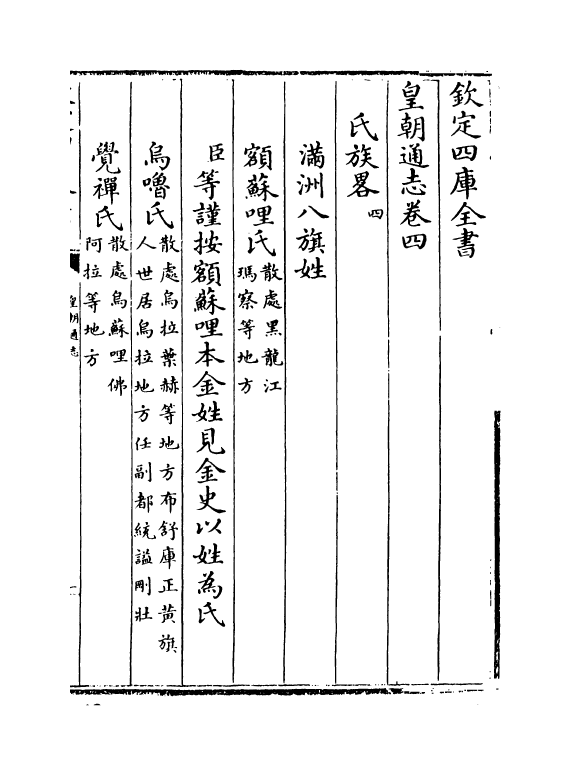 欽定四庫全書
皇朝通志卷四
氏族畧四
滿洲八旗姓
額蘇哩氏散處黑龍江
瑪察等地方
臣等謹按額蘇哩本金姓見金史以姓為氏
烏嚕氏散處烏拉葉赫等地方布舒庫正黃旗
人世居烏拉地方任副都統諡剛壯
覺禪氏散處烏蘇哩佛
阿拉等地方
皇朝通志
一